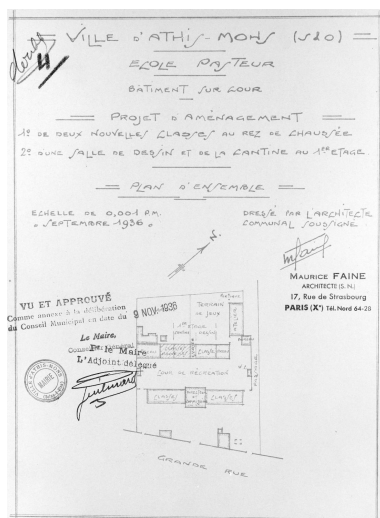 VILLE D'ATHIS-MONS (S&O)
ECOLE PASTEUR
BATIMENT SUR COUR
PROJET D'AMÉNAGEMENT
1º DE DEUX NOUVELLES CLASSES AU REZ DE CHAUSSÉE
2º D'UNE SALLE DE DESSIN ET DE LA CANTINE AU 1ER ETAGE.
PLAN D'ENSEMBLE
ECHELLE DE 0,001 P.M.
SEPTEMBRE 1936
DRESSÉ PAR L'ARCHITECTE
COMMUNAL SOUSSIGNÉ
N.
MAURICE FAINE
ARCHITECTE (S. N.)
17, Rue de Strasbourg
PARIS (Xº) Tél. Nord 64-28
VU ET APPROUVÉ
Comme annexe à la délibération
du Conseil Municipal en date du 9 NOV. 1936
Le Maire,
P. le Maire
L'Adjoint délégué
MAIRIE
TERRAIN
DE JEUX
1ER ETAGE
COUR DE RÉCRÉATION
CLASSES
CLASSES
GRANDE RUE